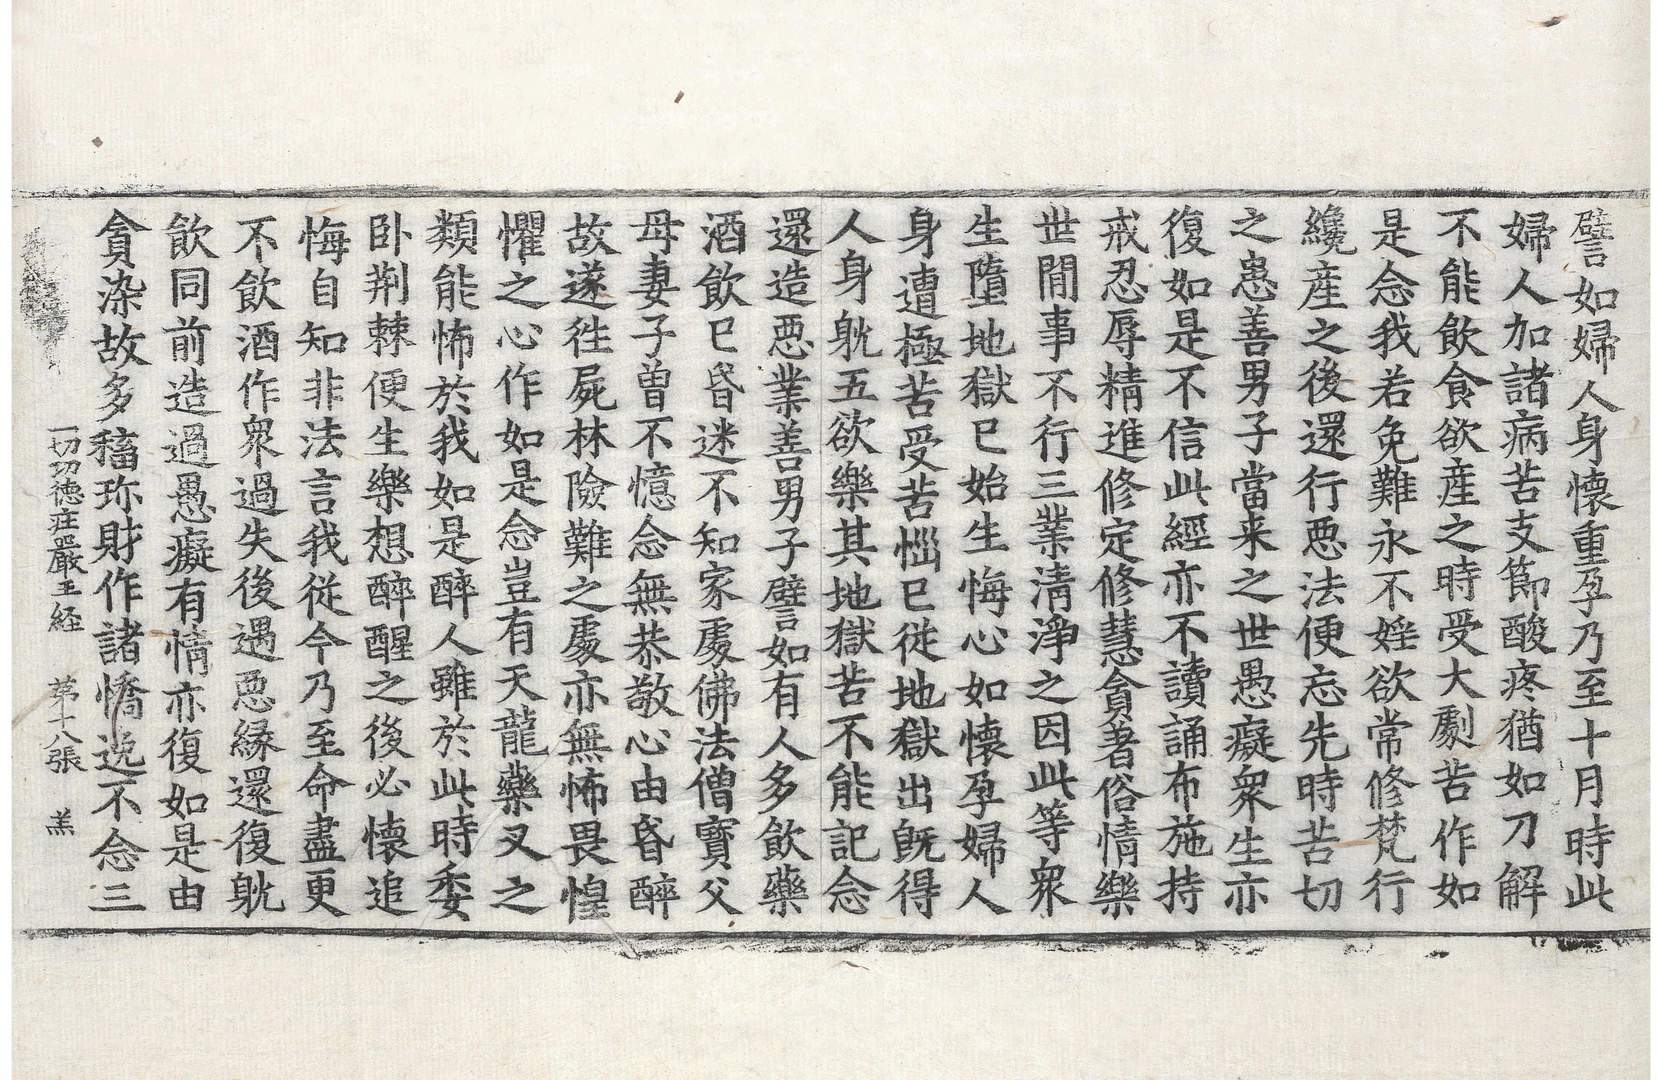 譬如婦人身懷重孕乃至十月時此
婦人加諸病苦支節酸疼猶如刀解
不能飲食欲産之時受大劇苦作如
是念我若免難永不婬欲常修梵行
纔産之後還行惡法便忘先時苦切
之患善男子當来之世愚癡衆生亦
復如是不信此經亦不讀誦布施持
戒忍辱精進修定修慧貪著俗情樂
世間事不行三業清淨之因此等衆
生墮地獄已始生悔心如懷孕婦人
身遭極苦受苦惱已従地獄出既得
人身躭五欲樂其地獄苦不能記念
還造惡業善男子譬如有人多飲藥
酒飲已昏迷不知家處佛法僧寶父
母妻子曾不憶念無恭敬心由昏醉
故遂往屍林險難之處亦無怖畏惶
懼之心作如是念豈有天龍藥叉之
類能怖於我如是醉人雖於此時委
卧荆棘便生樂想醉醒之後必懷追
悔自知非法言我従今乃至命盡更
不飲酒作衆過失後遇惡緣還復躭
飲同前造過愚癡有情亦復如是由
貪染故多稸珎財作諸憍逸不念三
一切功德莊嚴王経 苐十八張 羔